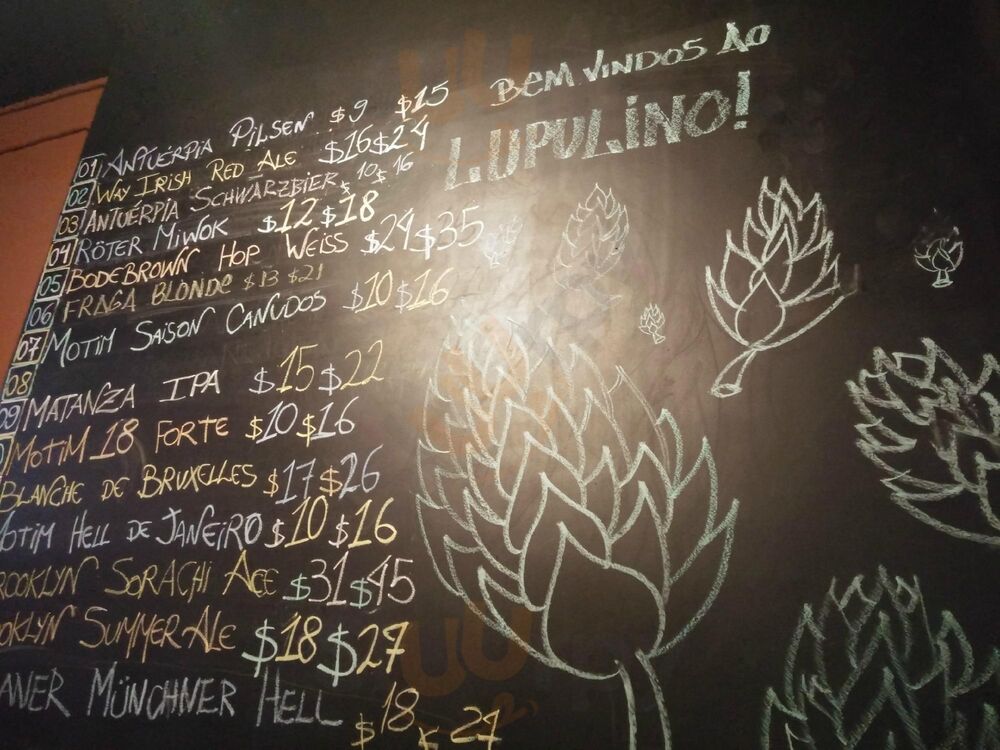 BEM VINDOS AO
LUPULINO!
01 ANTUÉRPIA PILSEN $9 $15
02 WAY IRISH RED ALE $16 $24
03 ANTUÉRPIA SCHWARZBIER $10 $16
04 RÖTER MIWOK $12 $18
05 BODEBROWN HOP WEISS $24 $35
06 FRAGA BLONDE $13 $21
07 MOTIM SAISON CANUDOS $10 $16
08
09 MATANZA IPA $15 $22
MOTIM 18 FORTE $10 $16
BLANCHE DE BRUXELLES $17 $26
MOTIM HELL DE JANEIRO $10 $16
ROOKLYN SORACHI ACE $31 $45
OKLYN SUMMER ALE $18 $27
ANER MÜNCHNER HELL $18 27